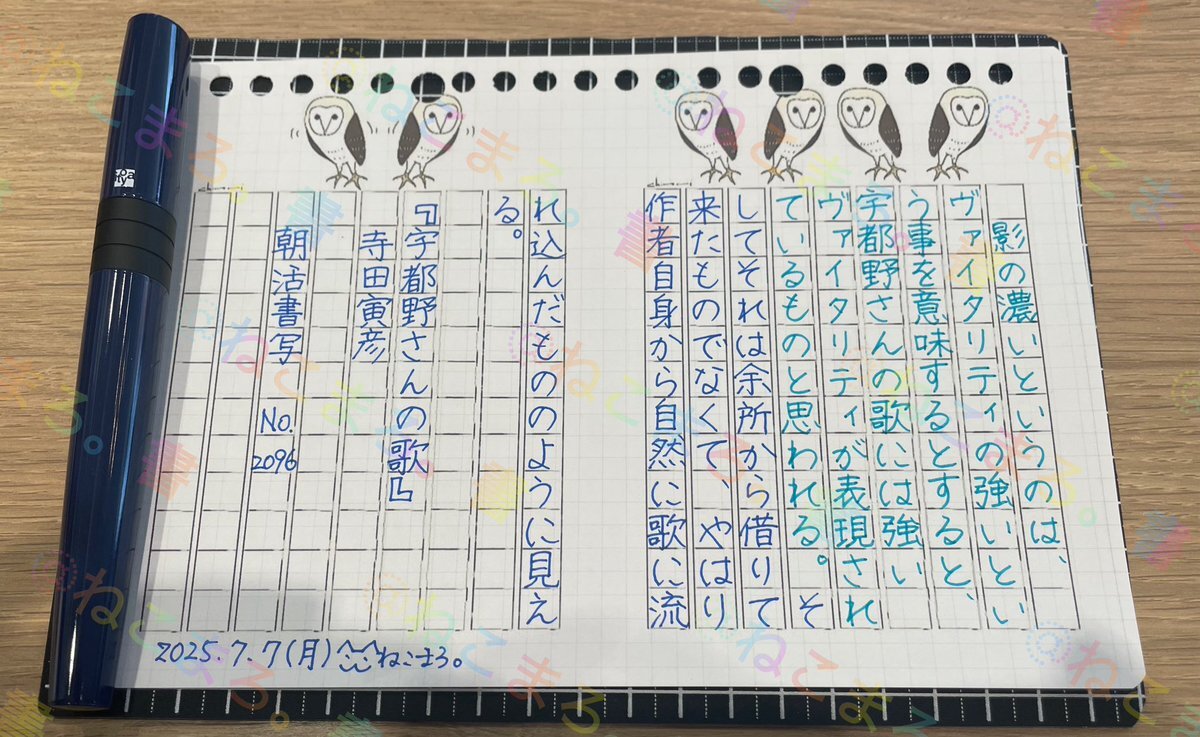 影の濃いというのは、
ヴァイタリティの強いとい
う事を意味するとすると、
宇都野さんの歌には強い
ヴァイタリティが表現され
ているものと思われる。そ
してそれは余所から借りて
来たものでなくて、やはり
作者自身から自然に歌に流
れ込んだもののように見え
る。
『宇都野さんの歌』
寺田寅彦
朝活書写 No. 2096
2025.7.7(月) ねこまろ。
@ねこまろ。書